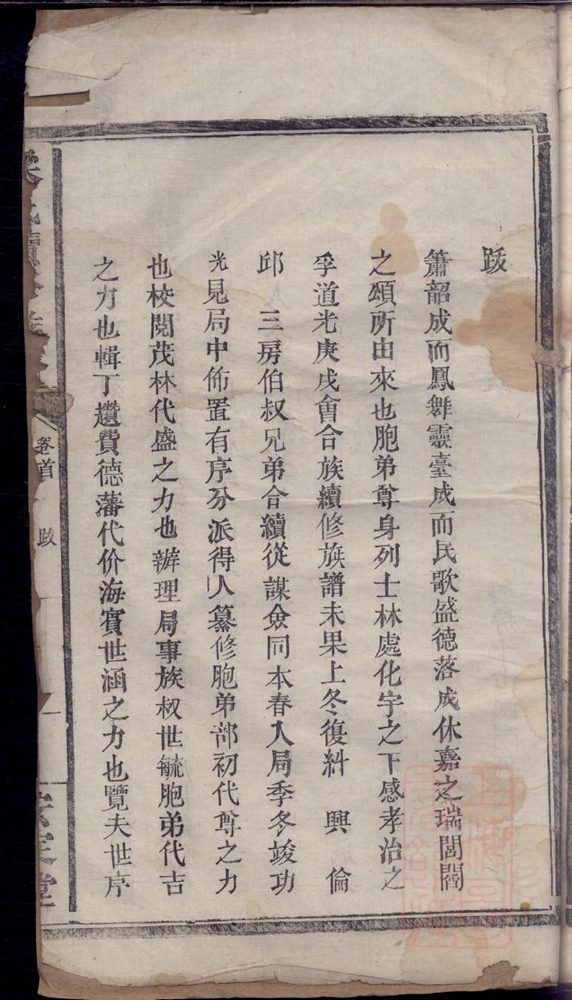 跋
簫韶成而鳳舞靈臺成而民歌盛德落成休嘉之瑞閭閻
之頌所由來也胞弟尊身列士林處化宇之下感孝治之
孚道光庚戌會合族續修族譜未果上冬復糾　興　倫
邱　三房伯叔兄弟合續從謀僉同本春入局季冬竣功
光見局中佈置有序分派得人纂修胞弟部初代尊之力
也校閱茂林代盛之力也辦理局事族叔世毓胞弟代吉
之力也輯丁趲費德藩代价海賓世涵之力也覽夫世序
卷首　跋　一
堂